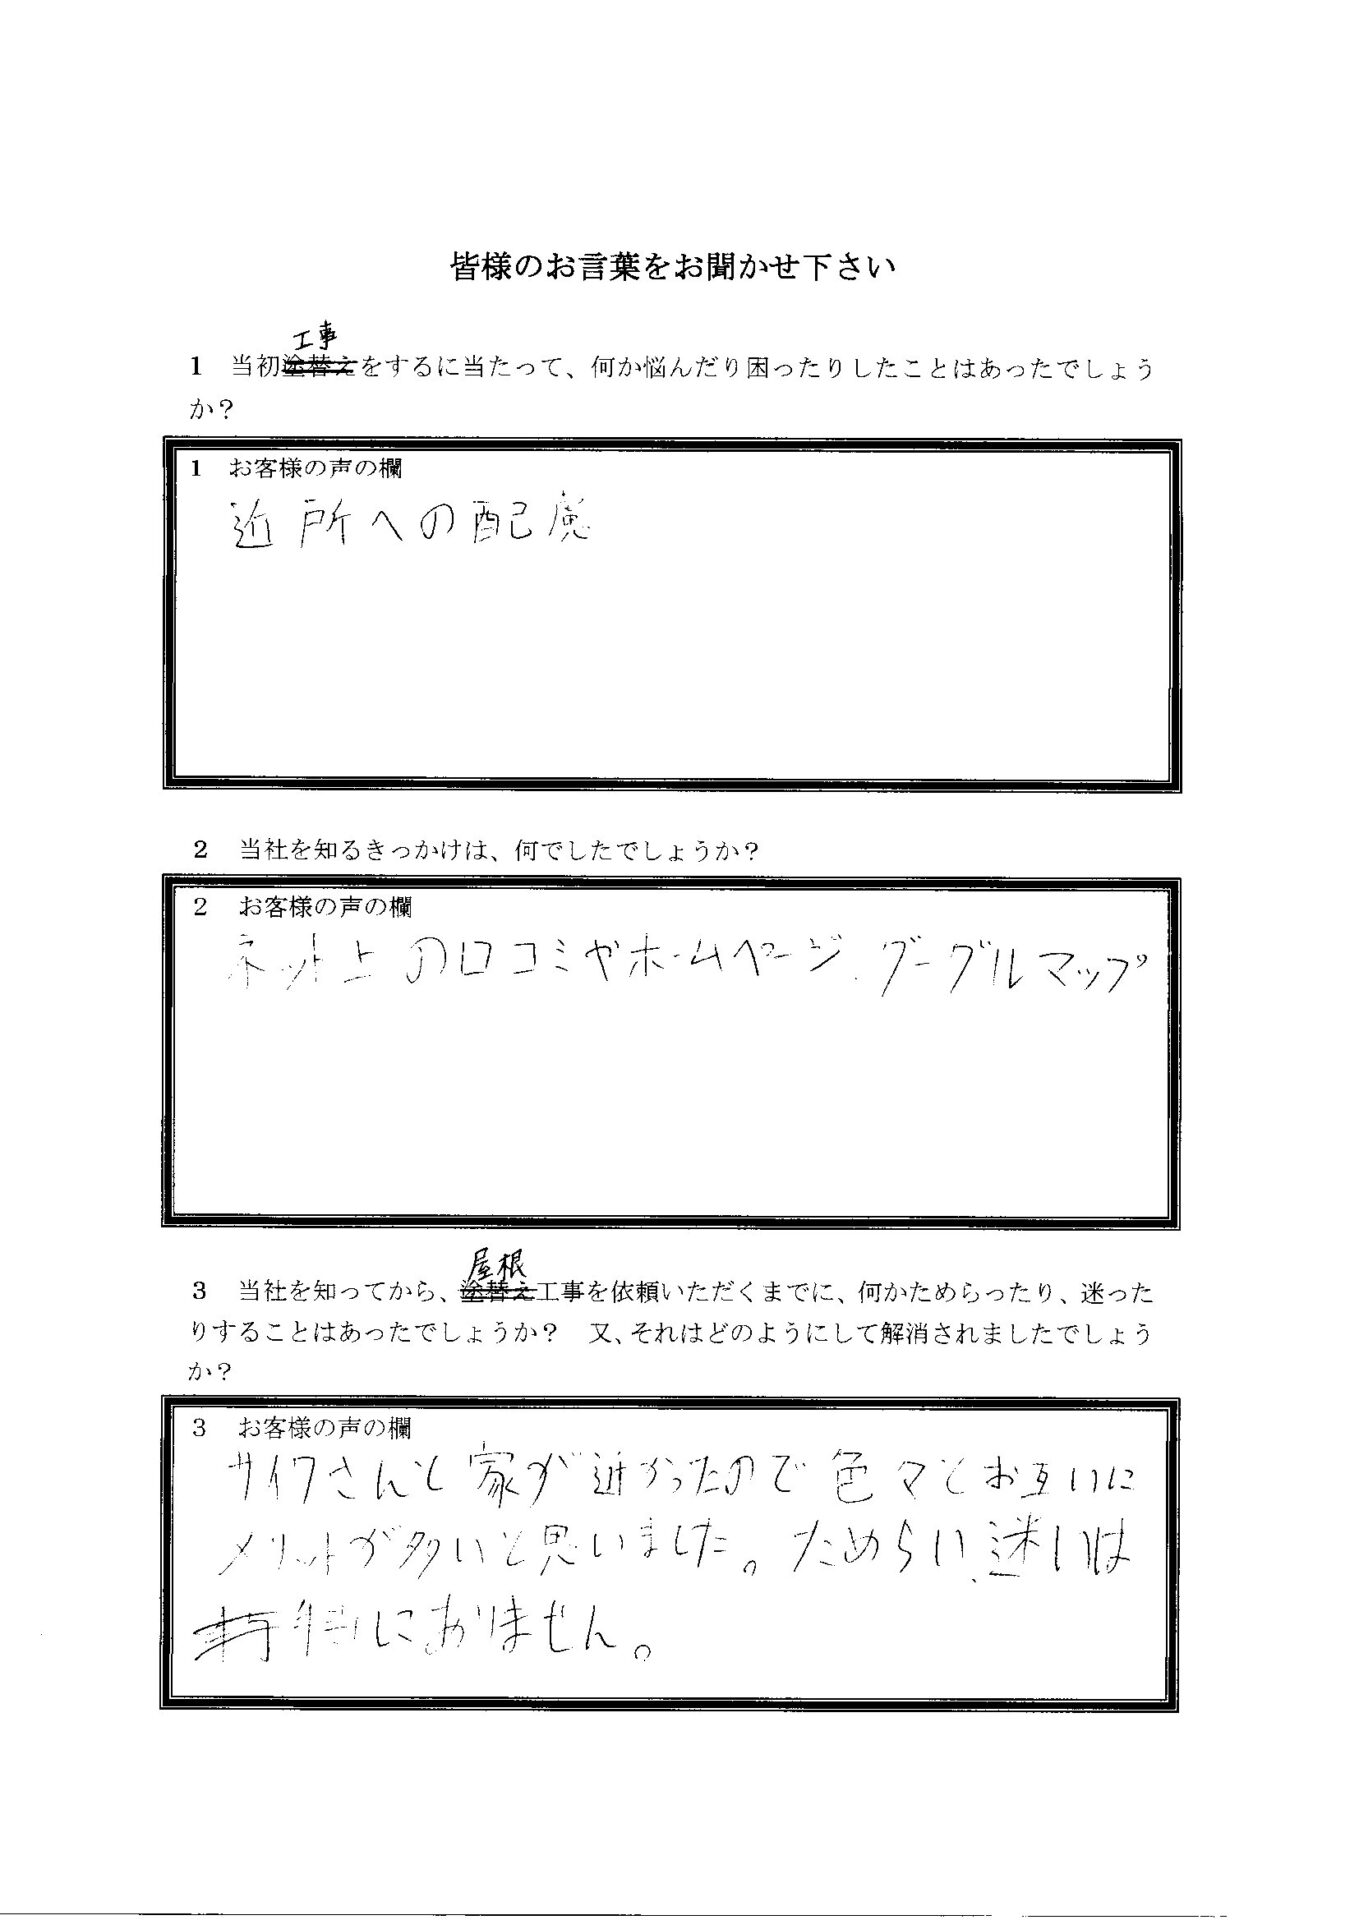 皆様のお言葉をお聞かせ下さい
工事
1 当初塗替えをするに当たって、何か悩んだり困ったりしたことはあったでしょう
か?
1 お客様の声の欄
近所への配慮
2 当社を知るきっかけは、何でしたでしょうか?
2 お客様の声の欄
ネット上の口コミやホームページ、グーグルマップ
屋根
3 当社を知ってから、塗替え工事を依頼いただくまでに、何かためらったり、迷った
りすることはあったでしょうか? 又、それはどのようにして解消されましたでしょう
か?
3 お客様の声の欄
サイワさんと家が近かったので色々とお互いに
メリットが多いと思いました。ためらい、迷いは
特にありません。